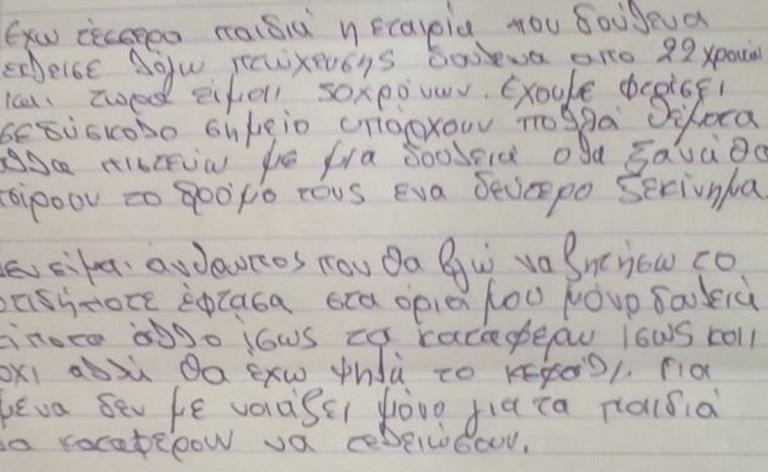 Εχω τέσσερα παιδιά η εταιρία που δούλευα
εκλεισε λόγω πτώχευσης δούλευα απο 22 χρονών
και τώρα είμαι 50χρόνων. Εχουμε φτάσει
σε δύσκολο σημείο υπάρχουν πολλά θέματα
αλλα πιστεύω με μια δουλειά ολα ξανά θα
πάρουν το δρόμο τους ενα δεύτερο ξεκίνημα.
δεν είμαι άνθρωπος που θα βγώ να ζητήσω το
οτιδήποτε έφτασα στα όρια μου μόνο δουλειά
τίποτα άλλο ίσως τα καταφέρω ισως και
οχι αλλά θα έχω ψηλά το κεφάλι. Για
μένα δεν με νοιάζει μόνο για τα παιδιά
να καταφέρουν να τελειώσουν.